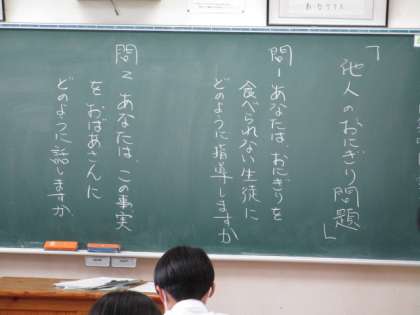 「他人のおにぎり問題」
問1 あなたは、おにぎりを
食べられない生徒に
どのように指導しますか
問2 あなたは、この事実
をおばあさんに
どのように話しますか